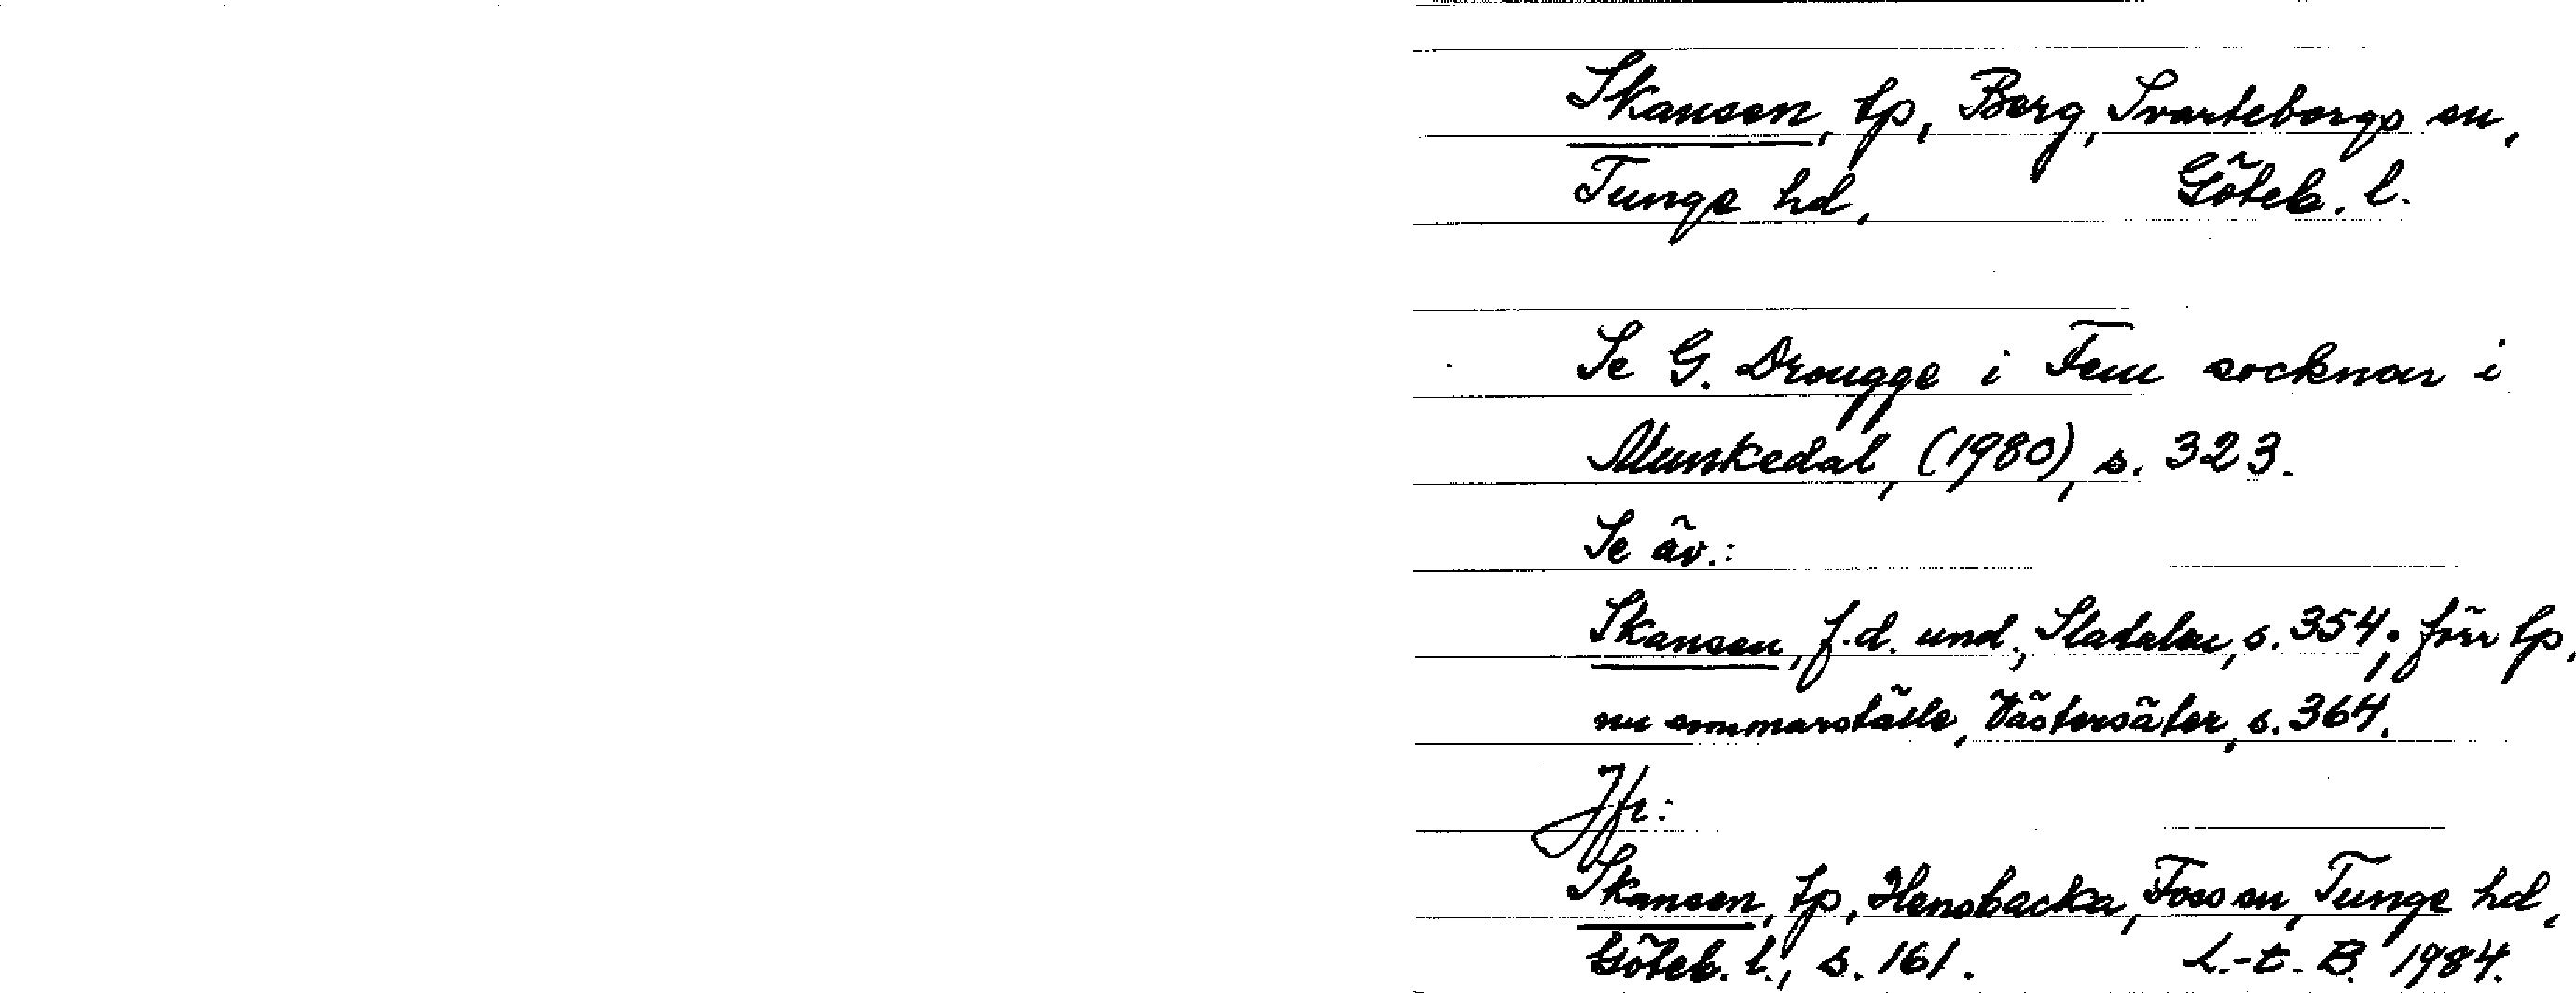 Skansen, tp, Berg, Svarteborgs sn,
Tunge hd, Göteb. l.
Se G. Drougge i Fem socknar i
Munkedal, (1980), s. 323.
Se äv.:
Skansen, f.d. und., Sladalen, s. 354; förr tp,
nu sommarställe, Västersäter, s. 364.
Jfr:
Skansen, tp, Hensbacka, Foss sn, Tunge hd,
Göteb. l., s. 161. L.-t. B. 1984.